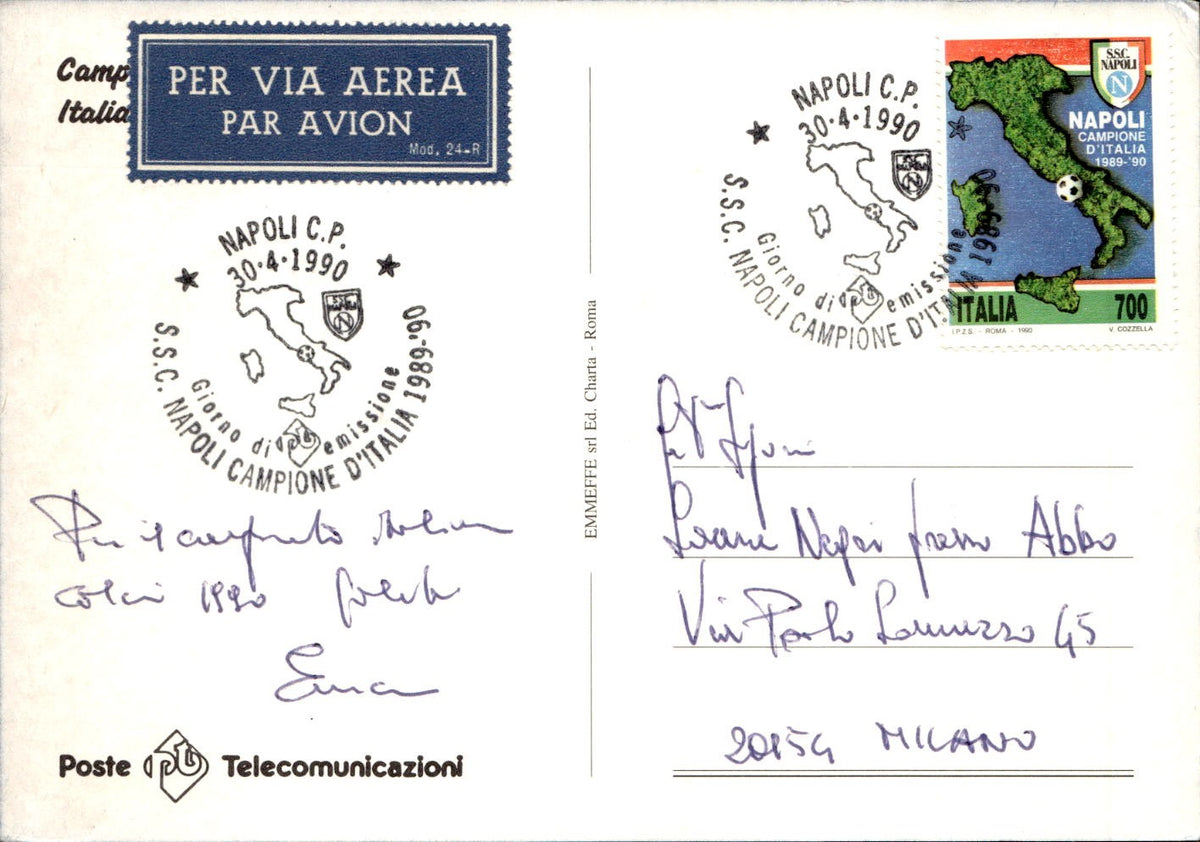 Camp
Italia
PER VIA AEREA
PAR AVION
Mod. 24-R
NAPOLI C.P.
30·4·1990
S.S.C. NAPOLI
N
Giorno di emissione
S.S.C. NAPOLI CAMPIONE D'ITALIA 1989-'90
Per il campionato italiano
calcio 1990
Poste Telecomunicazioni
EMMEFFE srl Ed. Charta - Roma
NAPOLI C.P.
30·4·1990
N
Giorno di emissione
S.S.C. NAPOLI CAMPIONE D'ITALIA 1989-'90
S.S.C.
NAPOLI
N
NAPOLI
CAMPIONE
D'ITALIA
1989-'90
ITALIA 700
I.P.Z.S. - ROMA - 1990 V. COZZELLA
Negri presso Abbo
Via Paolo Lomazzo 45
20154 MILANO